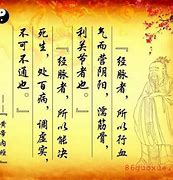 『经脉者，所以行血
气而营阴阳，濡筋骨，
利关节者也。』
『经脉者，所以能决
死生，处百病，调虚实，
不可不通也。』
——『黄帝内经』